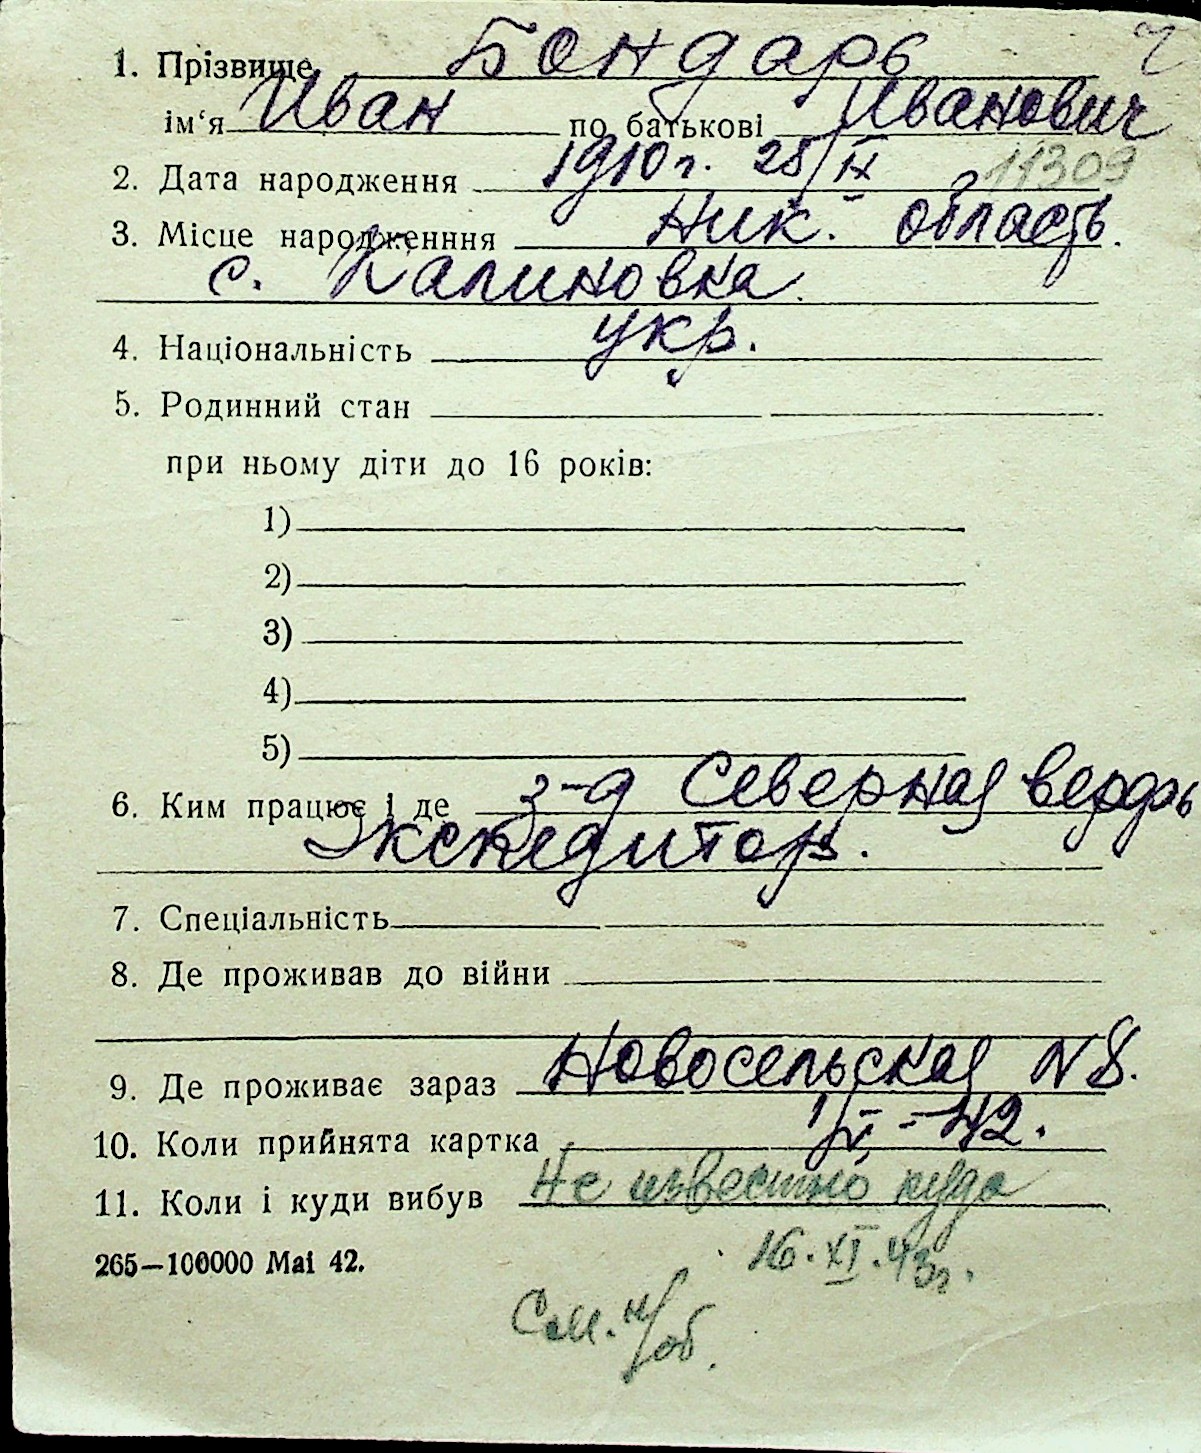 1. Прізвище Бондарь
ім‘я Иван по батькові Иванович
2. Дата народження 1910 г. 25/IX 11309
3. Місце народженння Ник. область.
с. Калиновка.
4. Національність укр.
5. Родинний стан
при ньому діти до 16 років:
1)
2)
3)
4)
5)
6. Ким працює і де з-д Северная верфь
Экспедитор.
7. Спеціальність
8. Де проживав до війни
9. Де проживає зараз Новосельская N 8.
10. Коли прийнята картка 1/V - 42.
11. Коли і куди вибув Не известно куда
265—100000 Mai 42. 16.XI.43г.
См. н/об.